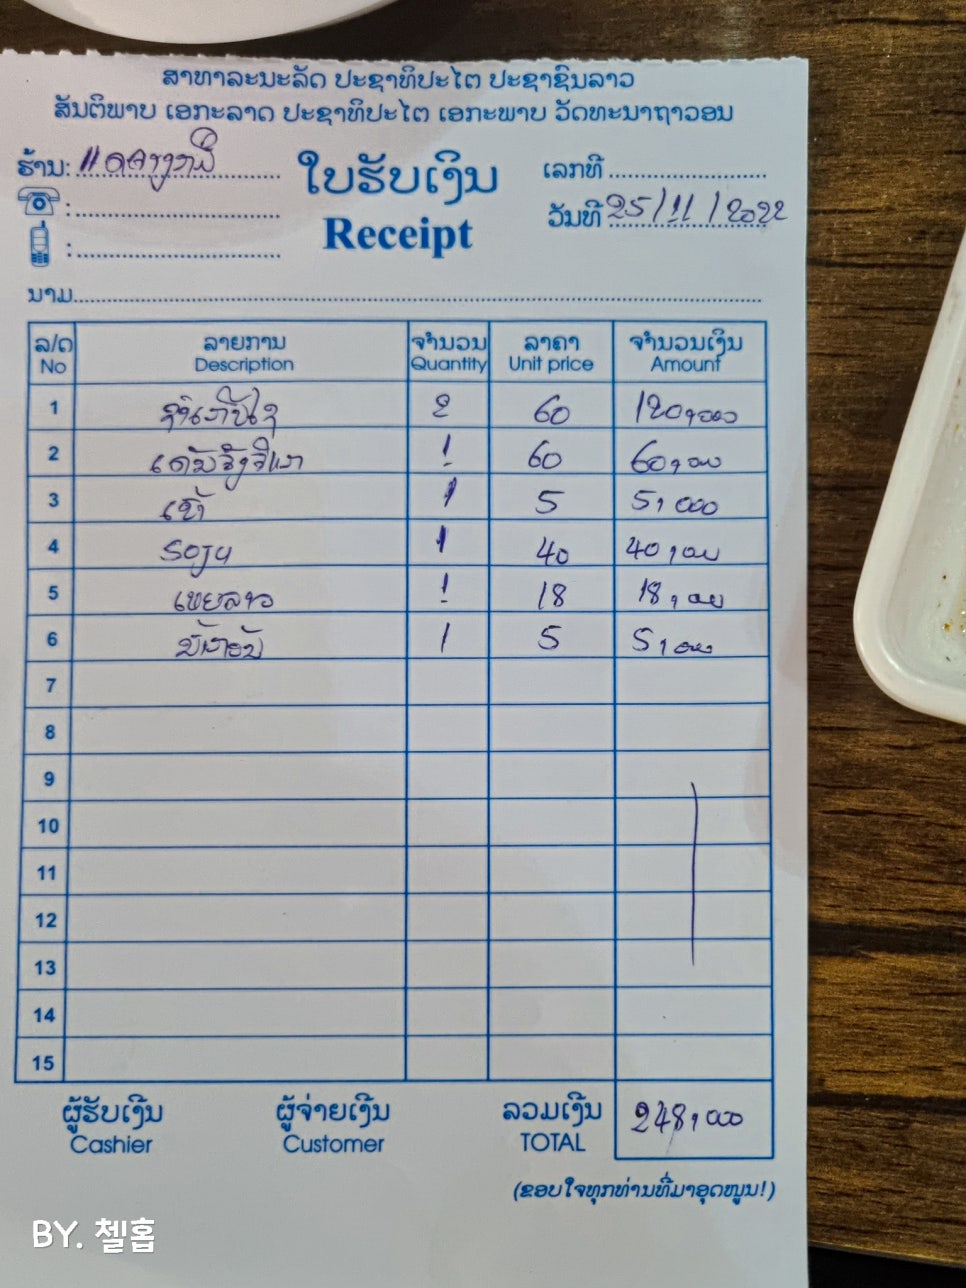 ສາທາລະນະລັດ ປະຊາທິປະໄຕ ປະຊາຊົນລາວ
ສັນຕິພາບ ເອກະລາດ ປະຊາທິປະໄຕ ເອກະພາບ ວັດທະນາຖາວອນ
ຮ້ານ: ໃບຮັບເງິນ ເລກທີ
Receipt ວັນທີ 25/11/2022
ນາມ
ລ/ດ ລາຍການ ຈຳນວນ ລາຄາ ຈຳນວນເງິນ
No Description Quantity Unit price Amount
1 2 60 120,000
2 1 60 60,000
3 ເຂົ້າ 1 5 5,000
4 Soju 1 40 40,000
5 ເບຍລາວ 1 18 18,000
6 1 5 5,000
7
8
9
10
11
12
13
14
15
ຜູ້ຮັບເງິນ ຜູ້ຈ່າຍເງິນ ລວມເງິນ 248,000
Cashier Customer TOTAL
(ຂອບໃຈທຸກທ່ານທີ່ມາອຸດໜູນ!)
BY. 첼홉